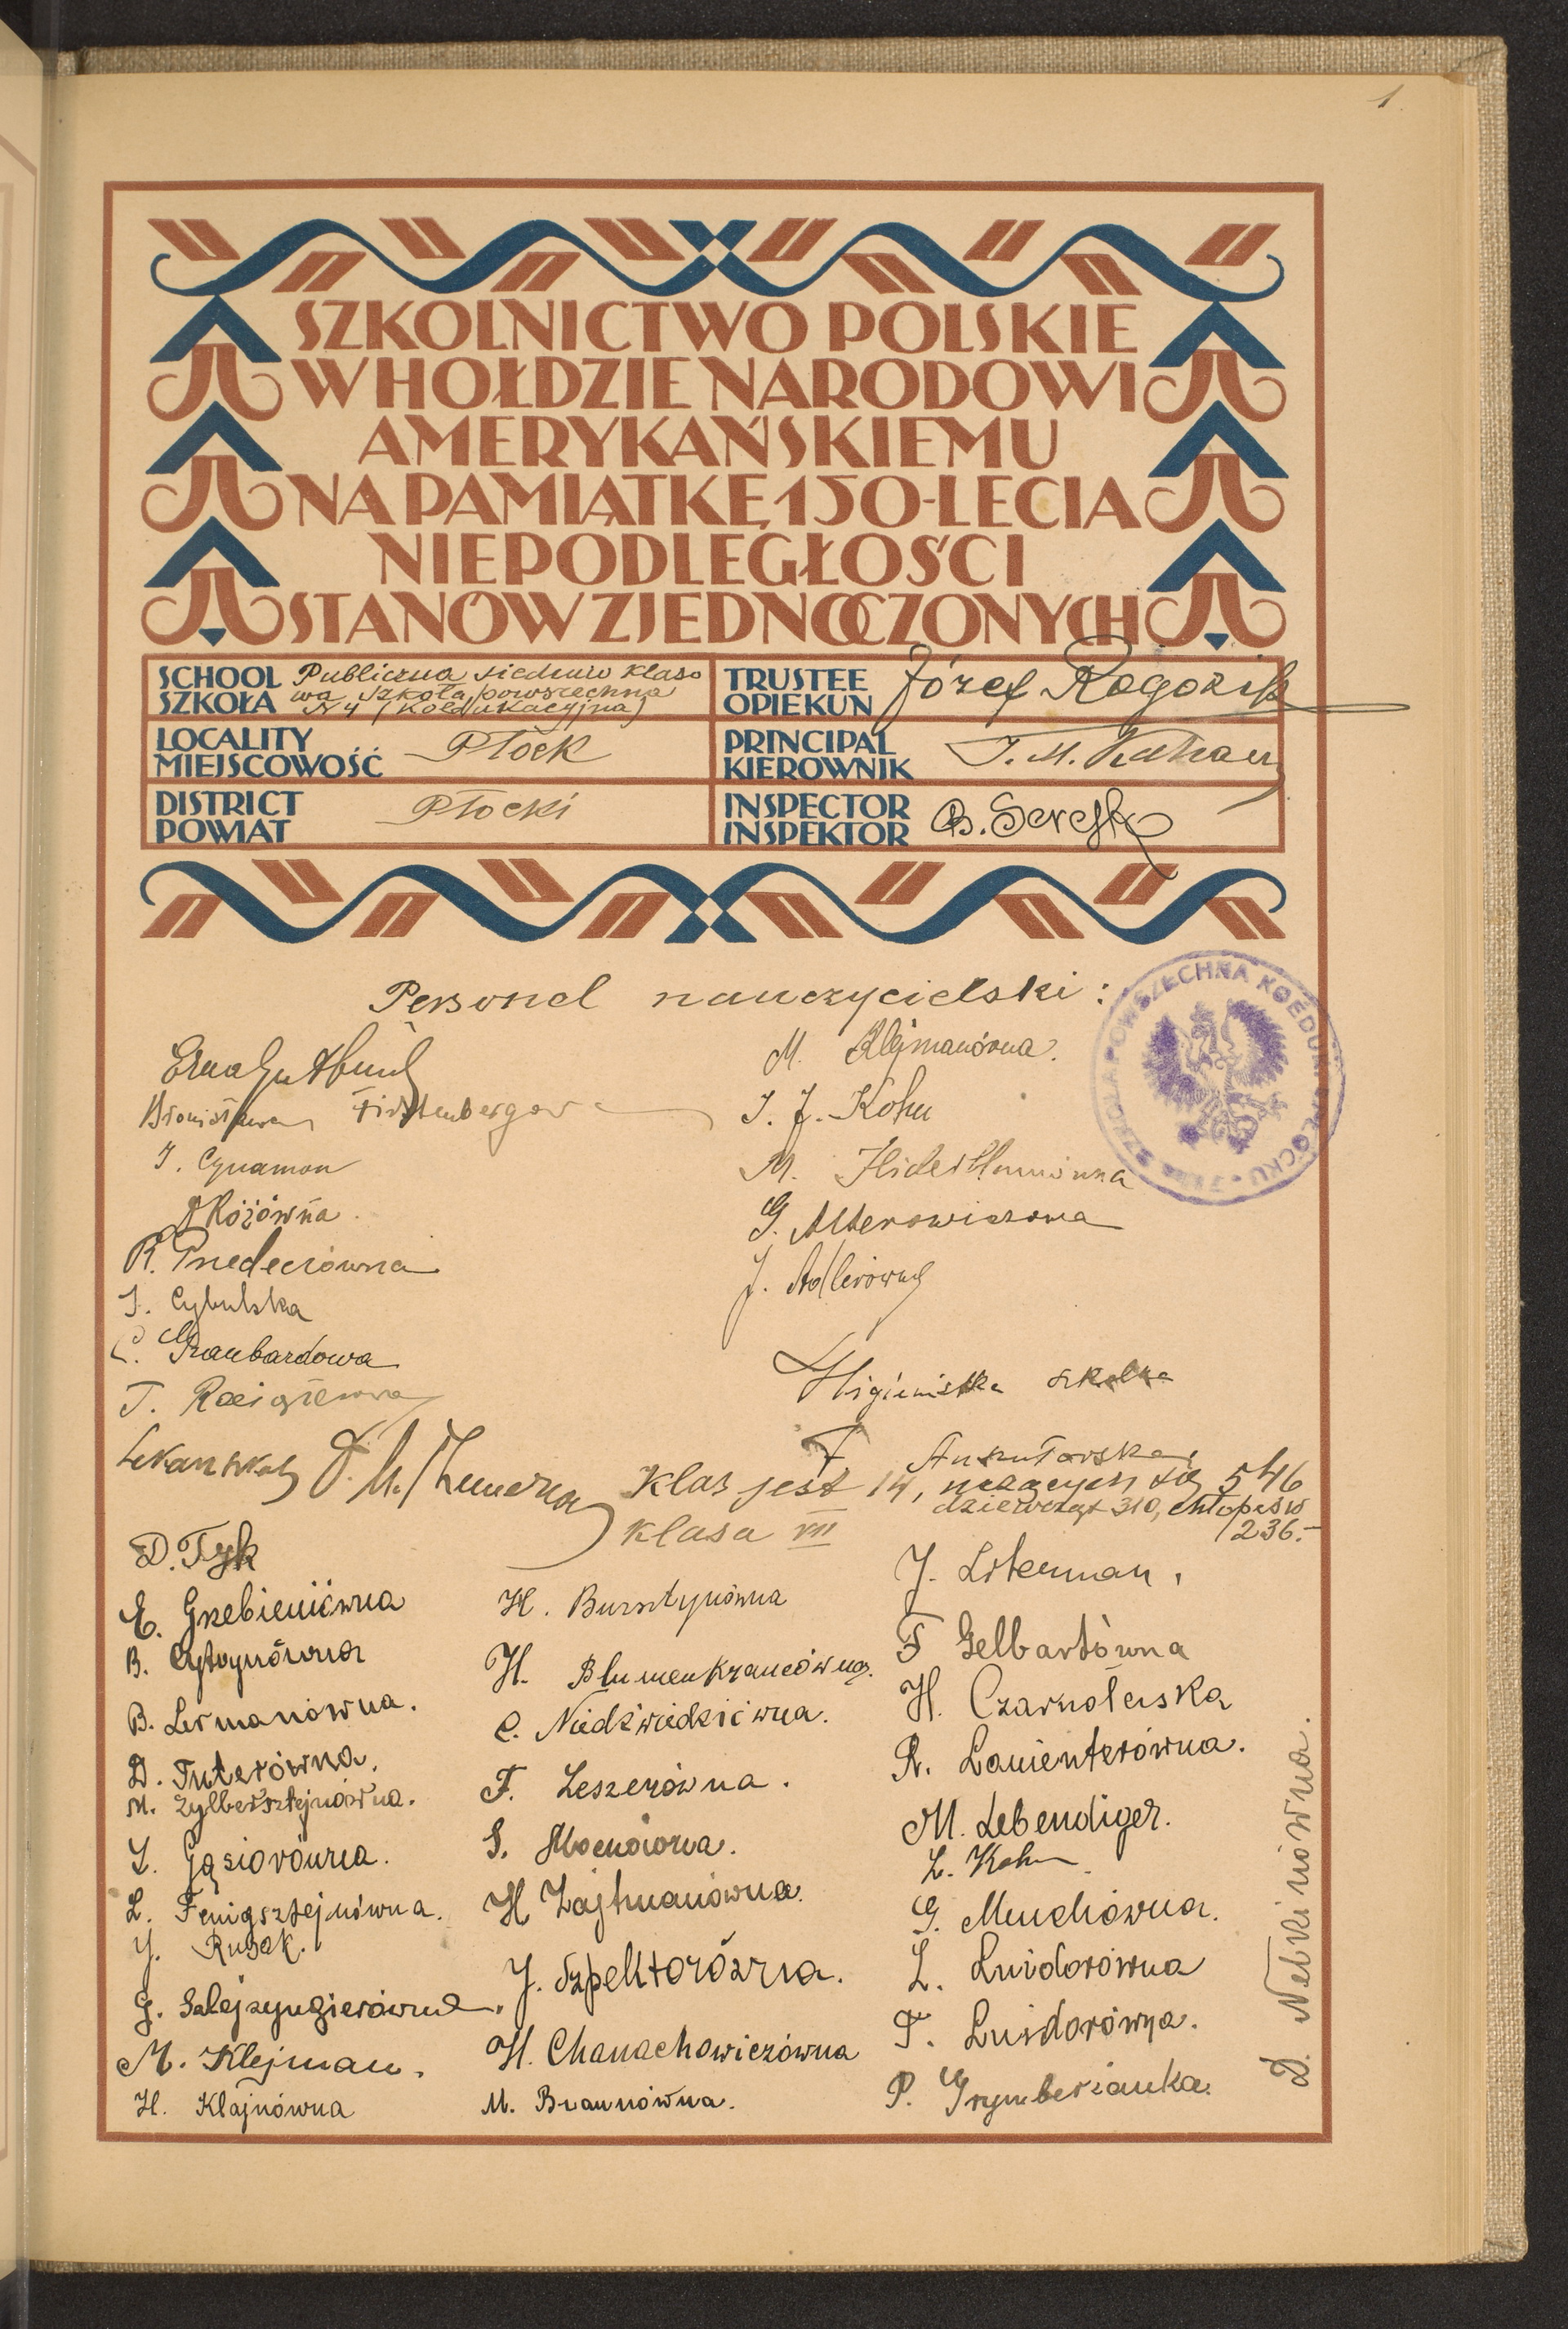 1
SZKOLNICTWO POLSKIE
W HOŁDZIE NARODOWI
AMERYKAŃSKIEMU
NA PAMIĄTKĘ 150-LECIA
NIEPODLEGŁOŚCI
STANÓW ZJEDNOCZONYCH
SCHOOL
SZKOŁA
Publiczna siedmio klaso
wa szkoła powszechna
N 4 (Koedukacyjna)
TRUSTEE
OPIEKUN
Józef
LOCALITY
MIEJSCOWOŚĆ
Płock
PRINCIPAL
KIEROWNIK
DISTRICT
POWIAT
Płocki
INSPECTOR
INSPEKTOR
Personel nauczycielski:
Bronisława
I. Cynamon
Różówna
R.
I. Cybulska
Graubardowa
T.
M. Klejmanówna.
J. J. Kohn
M.
G. Alterowiczowa
J. Adlerówna
Higienistka szkolna
Klas jest 14, uczących się 546
dziewcząt 310, chłopców
236.-
klasa VII
D. Tyk
E. Grzebieniówna
B. Cytrynówna
B. Lermanówna.
D. Futerówna.
M. Zylbersztejnówna.
L. Gąsiorówna.
L. Fenigsztejnówna.
J. Rusak.
G. Szlejzyngierówna.
M. Klejman.
H. Klajnówna
H. Bursztynówna
H. Blumenkrancówna.
C. Niedźwiedziówna.
F. Leszerówna.
S.
H. Zajtmanówna.
J. Szpektorówna.
H. Chanachowiczówna
M. Braunówna.
J. Literman.
F. Gelbartówna
H. Czarnoleska
R. Lamenterówna.
M. Lebendiger.
L. Kohn.
G. Muchówna.
L. Luidorówna
F. Luidorówna.
P. Grynberżanka.
D. Nelkinówna.
SZKOŁA POWSZECHNA KOEDUK. PŁOCKU